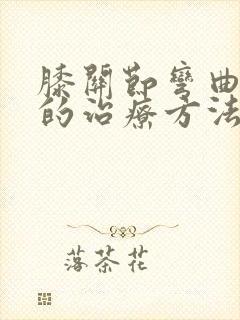 膝關節彎曲
的治療方法
落茶花